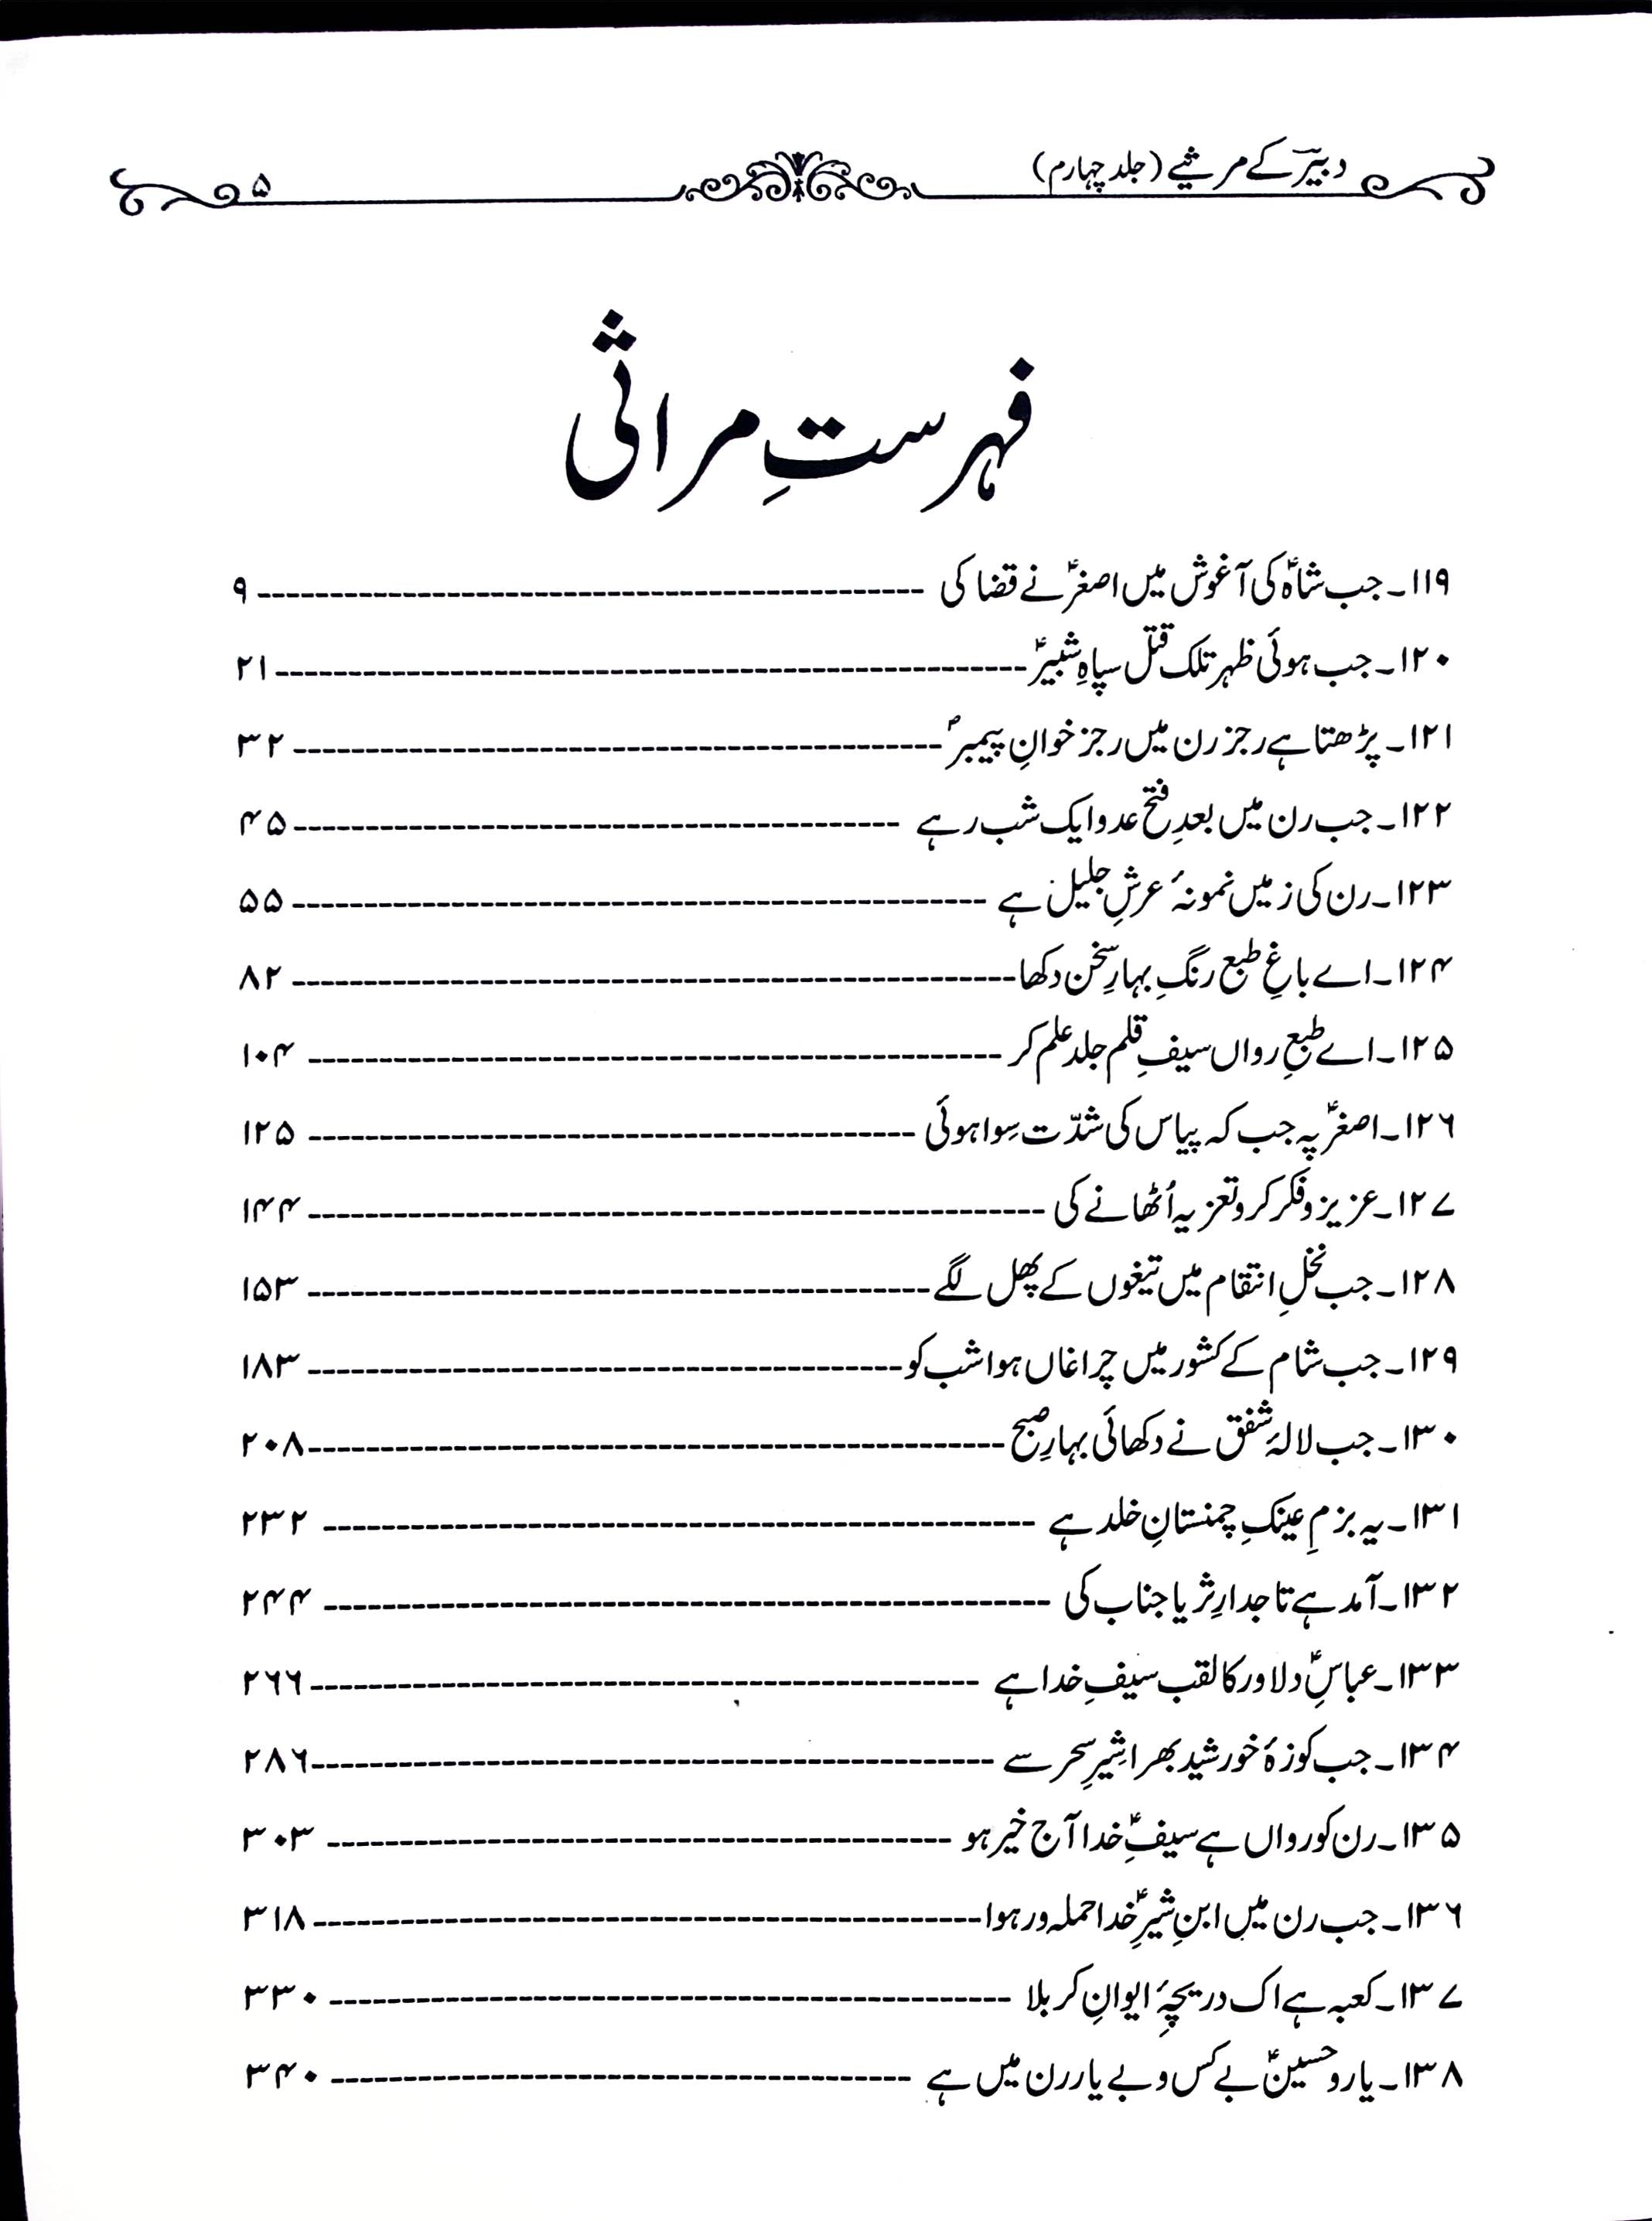 دبیرؔ کے مرثیے (جلد چہارم) ۵
فہرستِ مراثی
۱۱۹۔ جب شاہؑ کی آغوش میں اصغرؑ نے قضا کی ------ ۹
۱۲۰۔ جب ہوئی ظہر تلک قتل سپاہِ شبیرؑ ------ ۲۱
۱۲۱۔ پڑھتا ہے رجز رن میں رجز خوانِ پیمبرؐ ------ ۳۲
۱۲۲۔ جب رن میں بعدِ فتح عدو ایک شب رہے ------ ۴۵
۱۲۳۔ رن کی زمیں نمونۂ عرشِ جلیل ہے ------ ۵۵
۱۲۴۔ اے باغِ طبع رنگِ بہارِ سخن دکھا ------ ۸۲
۱۲۵۔ اے طبعِ رواں سیفِ قلم جلد علم کر ------ ۱۰۴
۱۲۶۔ اصغرؑ پہ جب کہ پیاس کی شدّت سِوا ہوئی ------ ۱۲۵
۱۲۷۔ عزیزو فکر کرو تعزیہ اُٹھانے کی ------ ۱۴۴
۱۲۸۔ جب نخلِ انتقام میں تیغوں کے پھل لگے ------ ۱۵۳
۱۲۹۔ جب شام کے کشور میں چراغاں ہوا شب کو ------ ۱۸۳
۱۳۰۔ جب لالۂ شفق نے دکھائی بہارِ صبح ------ ۲۰۸
۱۳۱۔ یہ بزمِ عینکِ چمنستانِ خلد ہے ------ ۲۳۲
۱۳۲۔ آمد ہے تاجدارِ ثریا جناب کی ------ ۲۴۴
۱۳۳۔ عباسِؑ دلاور کا لقب سیفِ خدا ہے ------ ۲۶۶
۱۳۴۔ جب کوزۂ خورشید بھرا شِیرِ سحر سے ------ ۲۸۶
۱۳۵۔ رن کو رواں ہے سیفِؑ خدا آج خیر ہو ------ ۳۰۳
۱۳۶۔ جب رن میں ابنِ شیرِؑ خدا حملہ ور ہوا ------ ۳۱۸
۱۳۷۔ کعبہ ہے اک دریچۂِ ایوانِ کربلا ------ ۳۳۰
۱۳۸۔ یارو حسینؑ بے کس و بے یار رن میں ہے ------ ۳۴۰